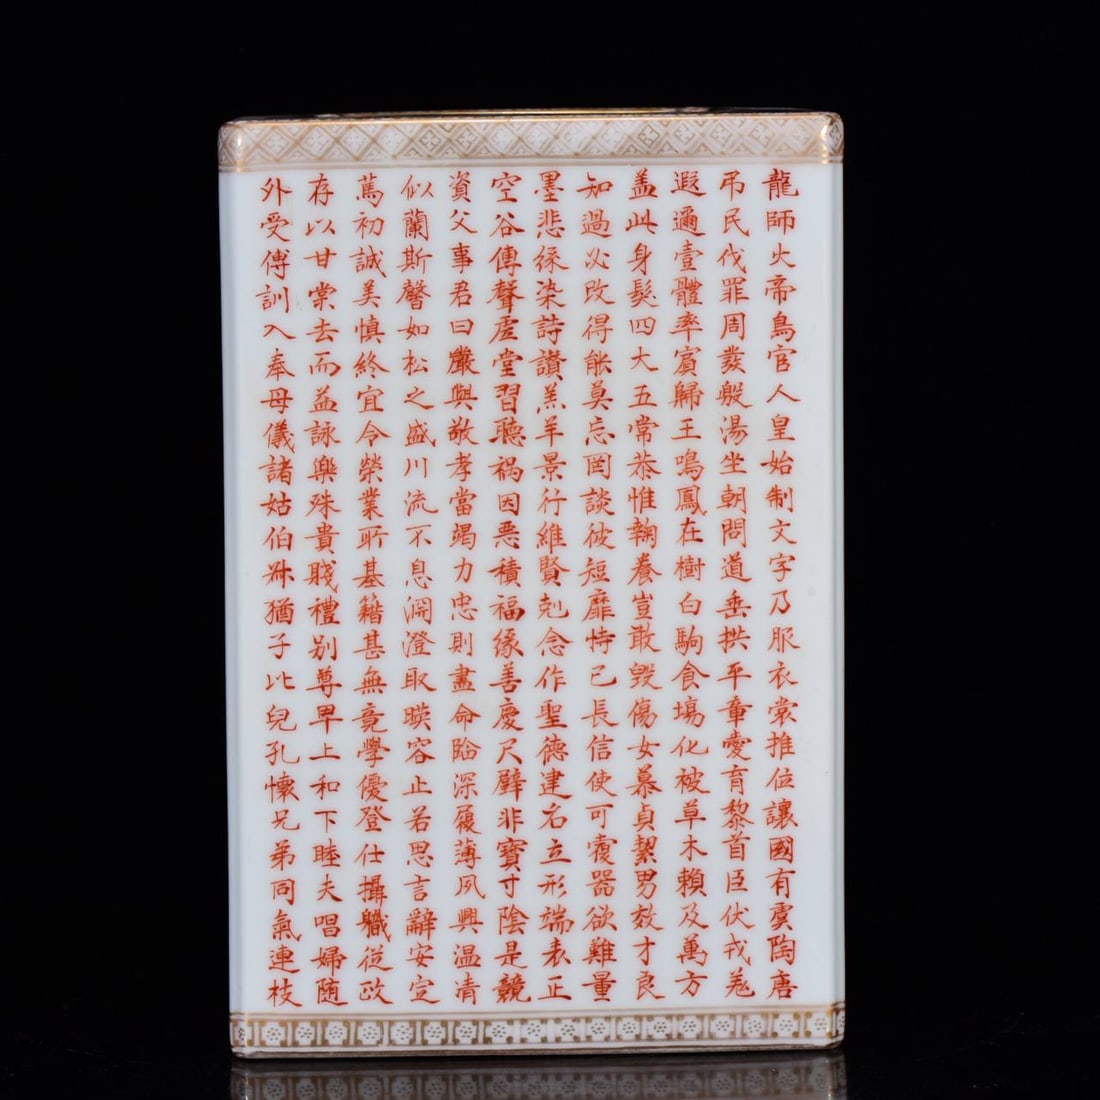 龍師火帝鳥官人皇始制文字乃服衣裳推位讓國有虞陶唐
吊民伐罪周發殷湯坐朝問道垂拱平章愛育黎首臣伏戎羌
遐邇壹體率賓歸王鳴鳳在樹白駒食場化被草木賴及萬方
盖此身髮四大五常恭惟鞠養豈敢毀傷女慕貞絜男效才良
知過必改得能莫忘罔談彼短靡恃已長信使可覆器欲難量
墨悲絲染詩讚羔羊景行維賢剋念作聖德建名立形端表正
空谷傳聲虛堂習聽禍因惡積福緣善慶尺璧非寶寸陰是競
資父事君曰嚴與敬孝當竭力忠則盡命臨深履薄夙興温凊
似蘭斯馨如松之盛川流不息淵澄取暎容止若思言辭安定
篤初誠美慎終宜令榮業所基籍甚無竟學優登仕攝職從政
存以甘棠去而益詠樂殊貴賤禮別尊卑上和下睦夫唱婦随
外受傅訓入奉母儀諸姑伯叔猶子比兒孔懷兄弟同氣連枝